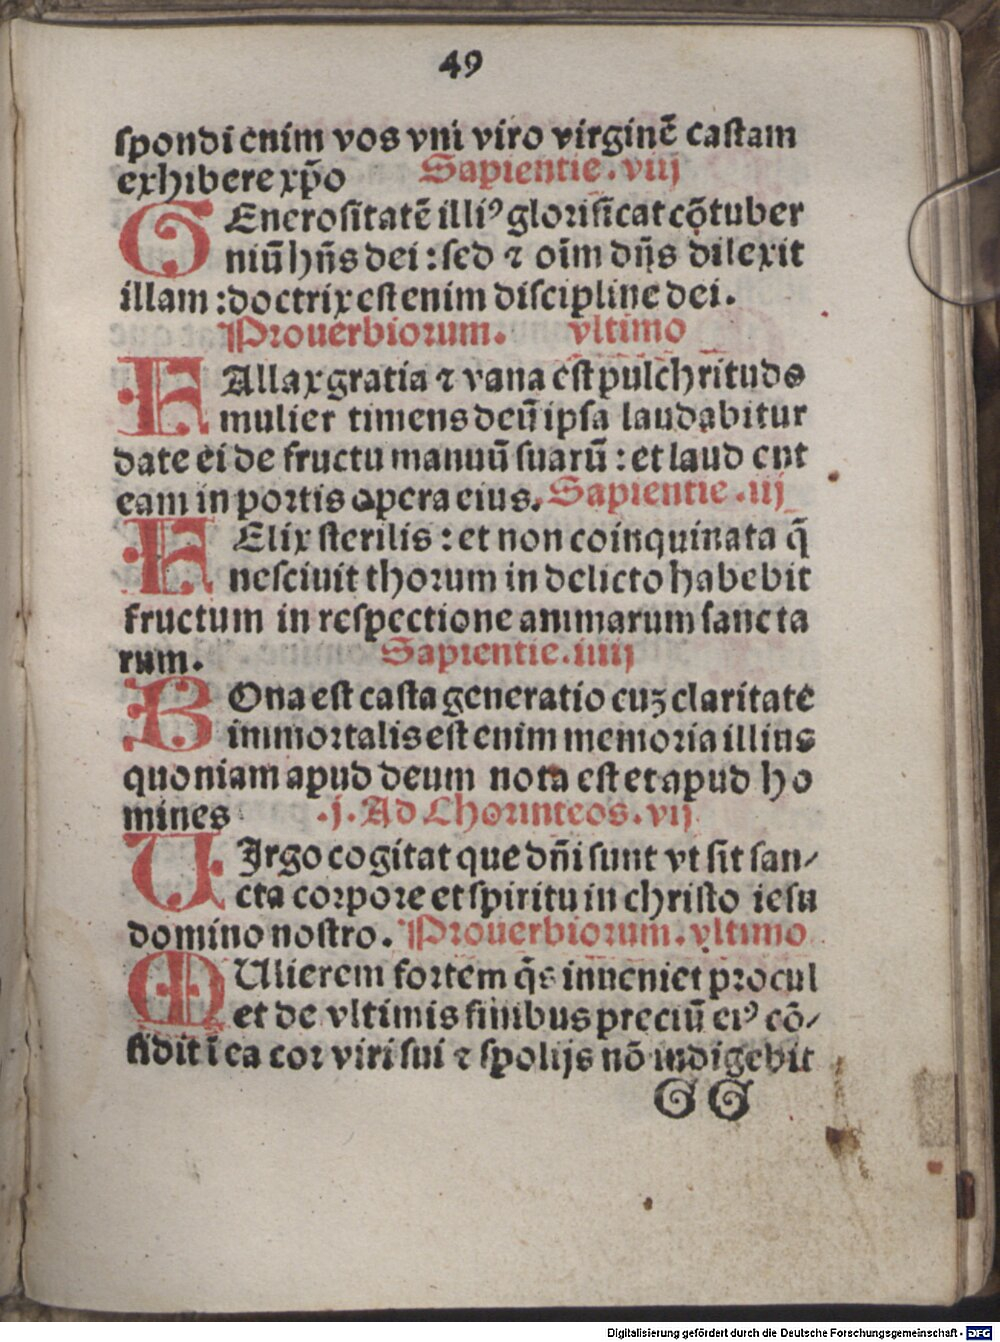 49
spondi enim vos vni viro virginē castam
exhibere xp̄o Sapientie.viij
GEnerositatē illiꝰ glorificat cōtuber
niū hn̄s dei : sed ⁊ oīm dn̄s dilexit
illam : doctrix est enim discipline dei.
Prouerbiorum. vltimo
FAllax gratia ⁊ vana est pulchritudo
mulier timens deū ipsa laudabitur
date ei de fructu manuū suarū : et laud ent
eam in portis opera eius. Sapientie.iij
FElix sterilis : et non coinquinata q̄
nesciuit thorum in delicto habebit
fructum in respectione animarum sancta
rum. Sapientie.iiij
BOna est casta generatio cuȝ claritate
immortalis est enim memoria illius
quoniam apud deum nota est et apud ho
mines .j. Ad Chorinteos.vij
VIrgo cogitat que dn̄i sunt vt sit san⸗
cta corpore et spiritu in christo iesu
domino nostro. Prouerbiorum.vltimo
MUlierem fortem q̄s inueniet procul
et de vltimis finibus preciū eiꝰ cō⸗
fidit ī ea cor viri sui ⁊ spolijs nō indigebit
G G
Digitalisierung gefördert durch die Deutsche Forschungsgemeinschaft - DFG